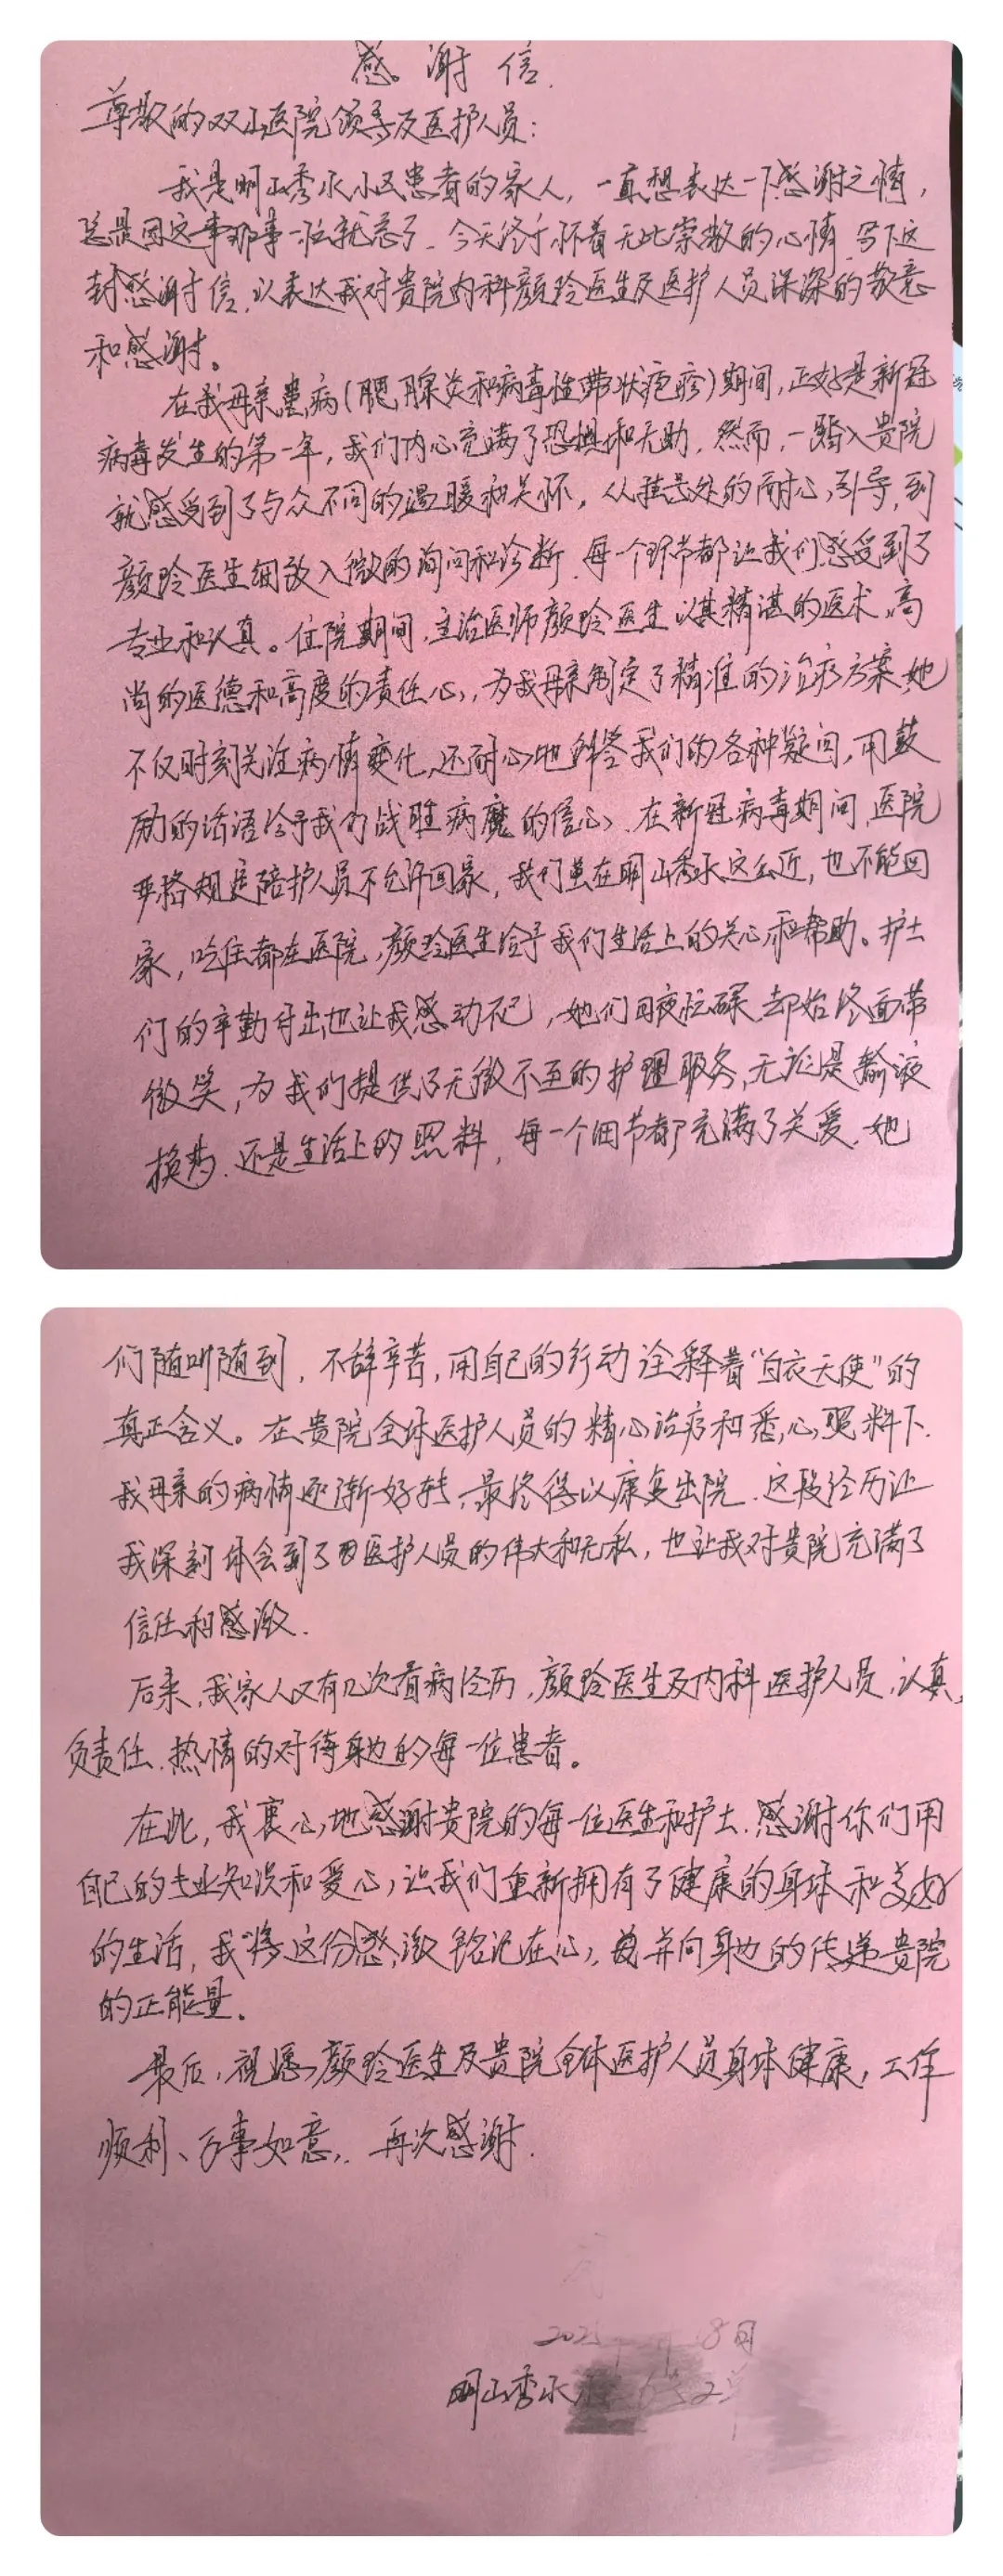 感谢信.
尊敬的双山医院领导及医护人员:
我是明山秀水小区患者的家人，一直想表达一下感谢之情，
总是因这事那事一拉就忘了.今天终于怀着无比崇敬的心情,写下这
封感谢信,以表达我对贵院内科颜玲医生及医护人员深深的敬意
和感谢。
在我母亲患病(腮腺炎和病毒性带状疱疹)期间,正好是新冠
病毒发生的第一年，我们内心充满了恐惧和无助.然而,一踏入贵院
就感受到了与众不同的温暖和关怀，从挂号处的耐心引导,到
颜玲医生细致入微的询问和诊断.每一个环节都让我们感受到了
专业和认真。住院期间,主治医师颜玲医生以其精湛的医术、高
尚的医德和高度的责任心,为我母亲制定了精准的治疗方案,她
不仅时刻关注病情变化,还耐心地解答我们的各种疑问,用鼓
励的话语给予我们战胜病魔的信心、在新冠病毒期间,医院
严格规定陪护人员不允许回家，我们虽在明山秀水这么近，也不能回
家，吃住都在医院,颜玲医生给予我们生活上的关心和帮助。护士
们的辛勤付出也让我感动不已，她们日夜忙碌,却始终面带
微笑，为我们提供了无微不至的护理服务,无论是输液
换药.还是生活上的照料，每一个细节都充满了关爱.她
们随叫随到，不辞辛苦,用自己的行动诠释着“白衣天使”的
真正含义。在贵院全体医护人员的精心治疗和悉心照料下.
我母亲的病情逐渐好转,最终得以康复出院.这段经历让
我深刻体会到了医护人员的伟大和无私，也让我对贵院充满了
信任和感激.
后来,我家人又有几次看病经历,颜玲医生及内科医护人员,认真,
负责任.热情的对待身边的每一位患者。
在此，我衷心地感谢贵院的每一位医生和护士.感谢你们用
自己的专业知识和爱心,让我们重新拥有了健康的身体和美好
的生活，我将这份感激铭记在心,并向身边的传递贵院
的正能量.
最后,祝愿颜玲医生及贵院全体医护人员身体健康，工作
顺利、万事如意,.再次感谢.
8日
明山秀水